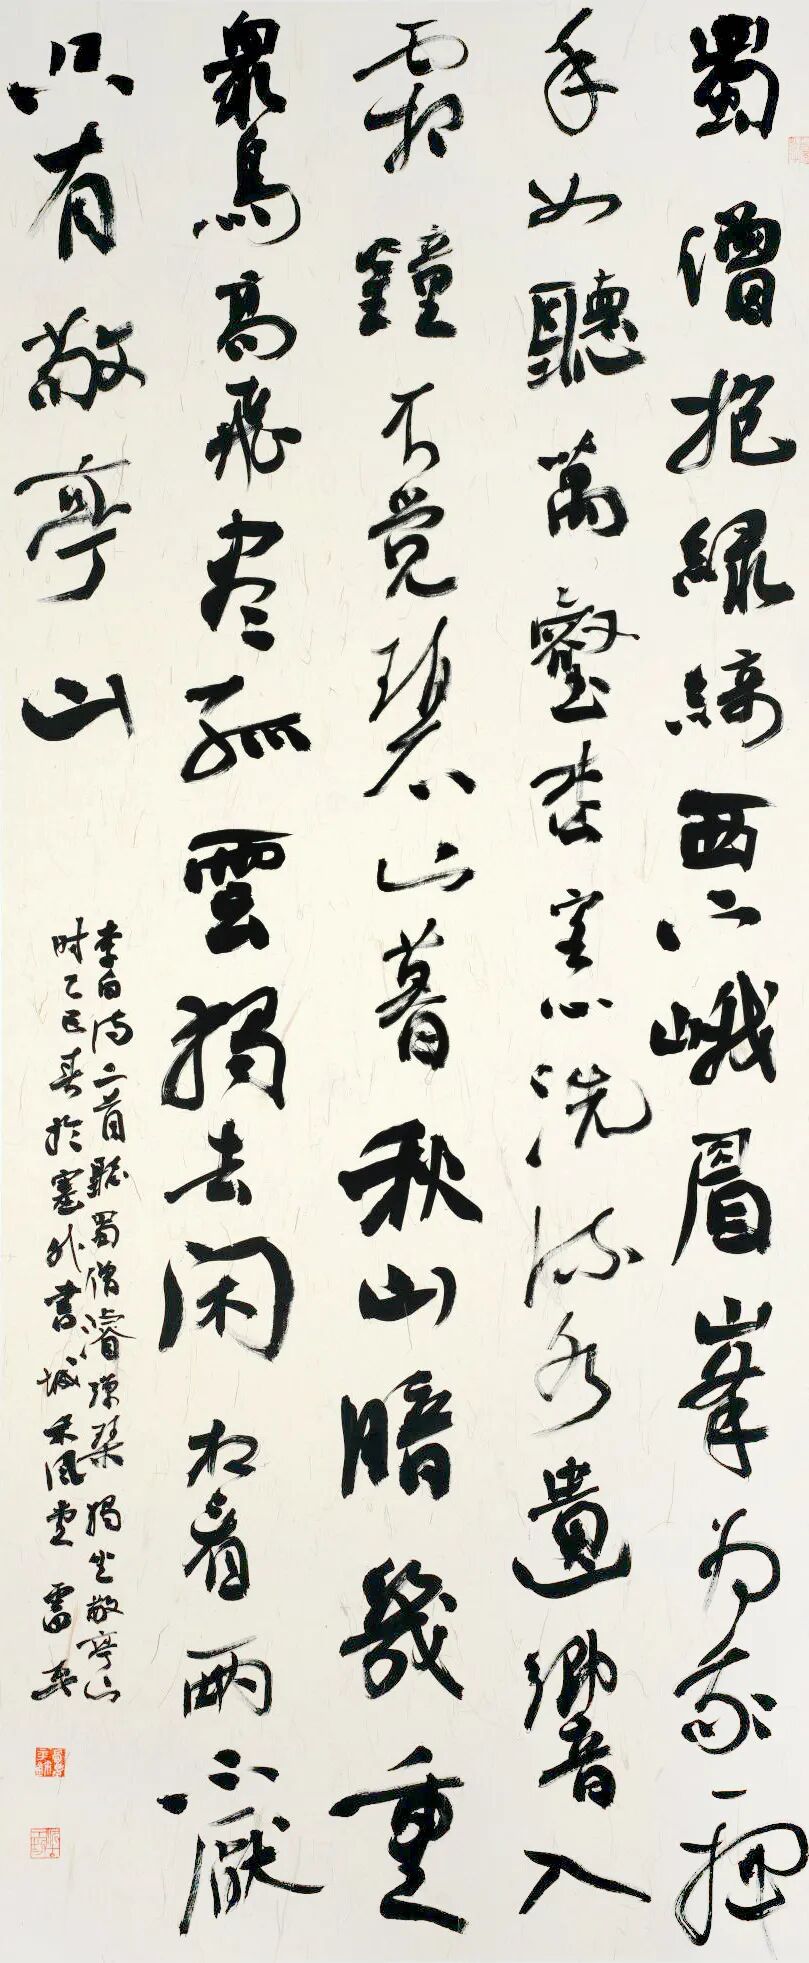 蜀僧抱綠綺西下峨眉峯為我一揮
手如聽萬壑松客心洗流水遺響入
霜鐘不觉碧山暮秋山暗幾重
眾鳥高飛尽孤雲獨去闲相看兩不厭
只有敬亭山
李白詩二首聽蜀僧濬彈琴獨坐敬亭山
时乙巳春於塞外書城禾風堂雷